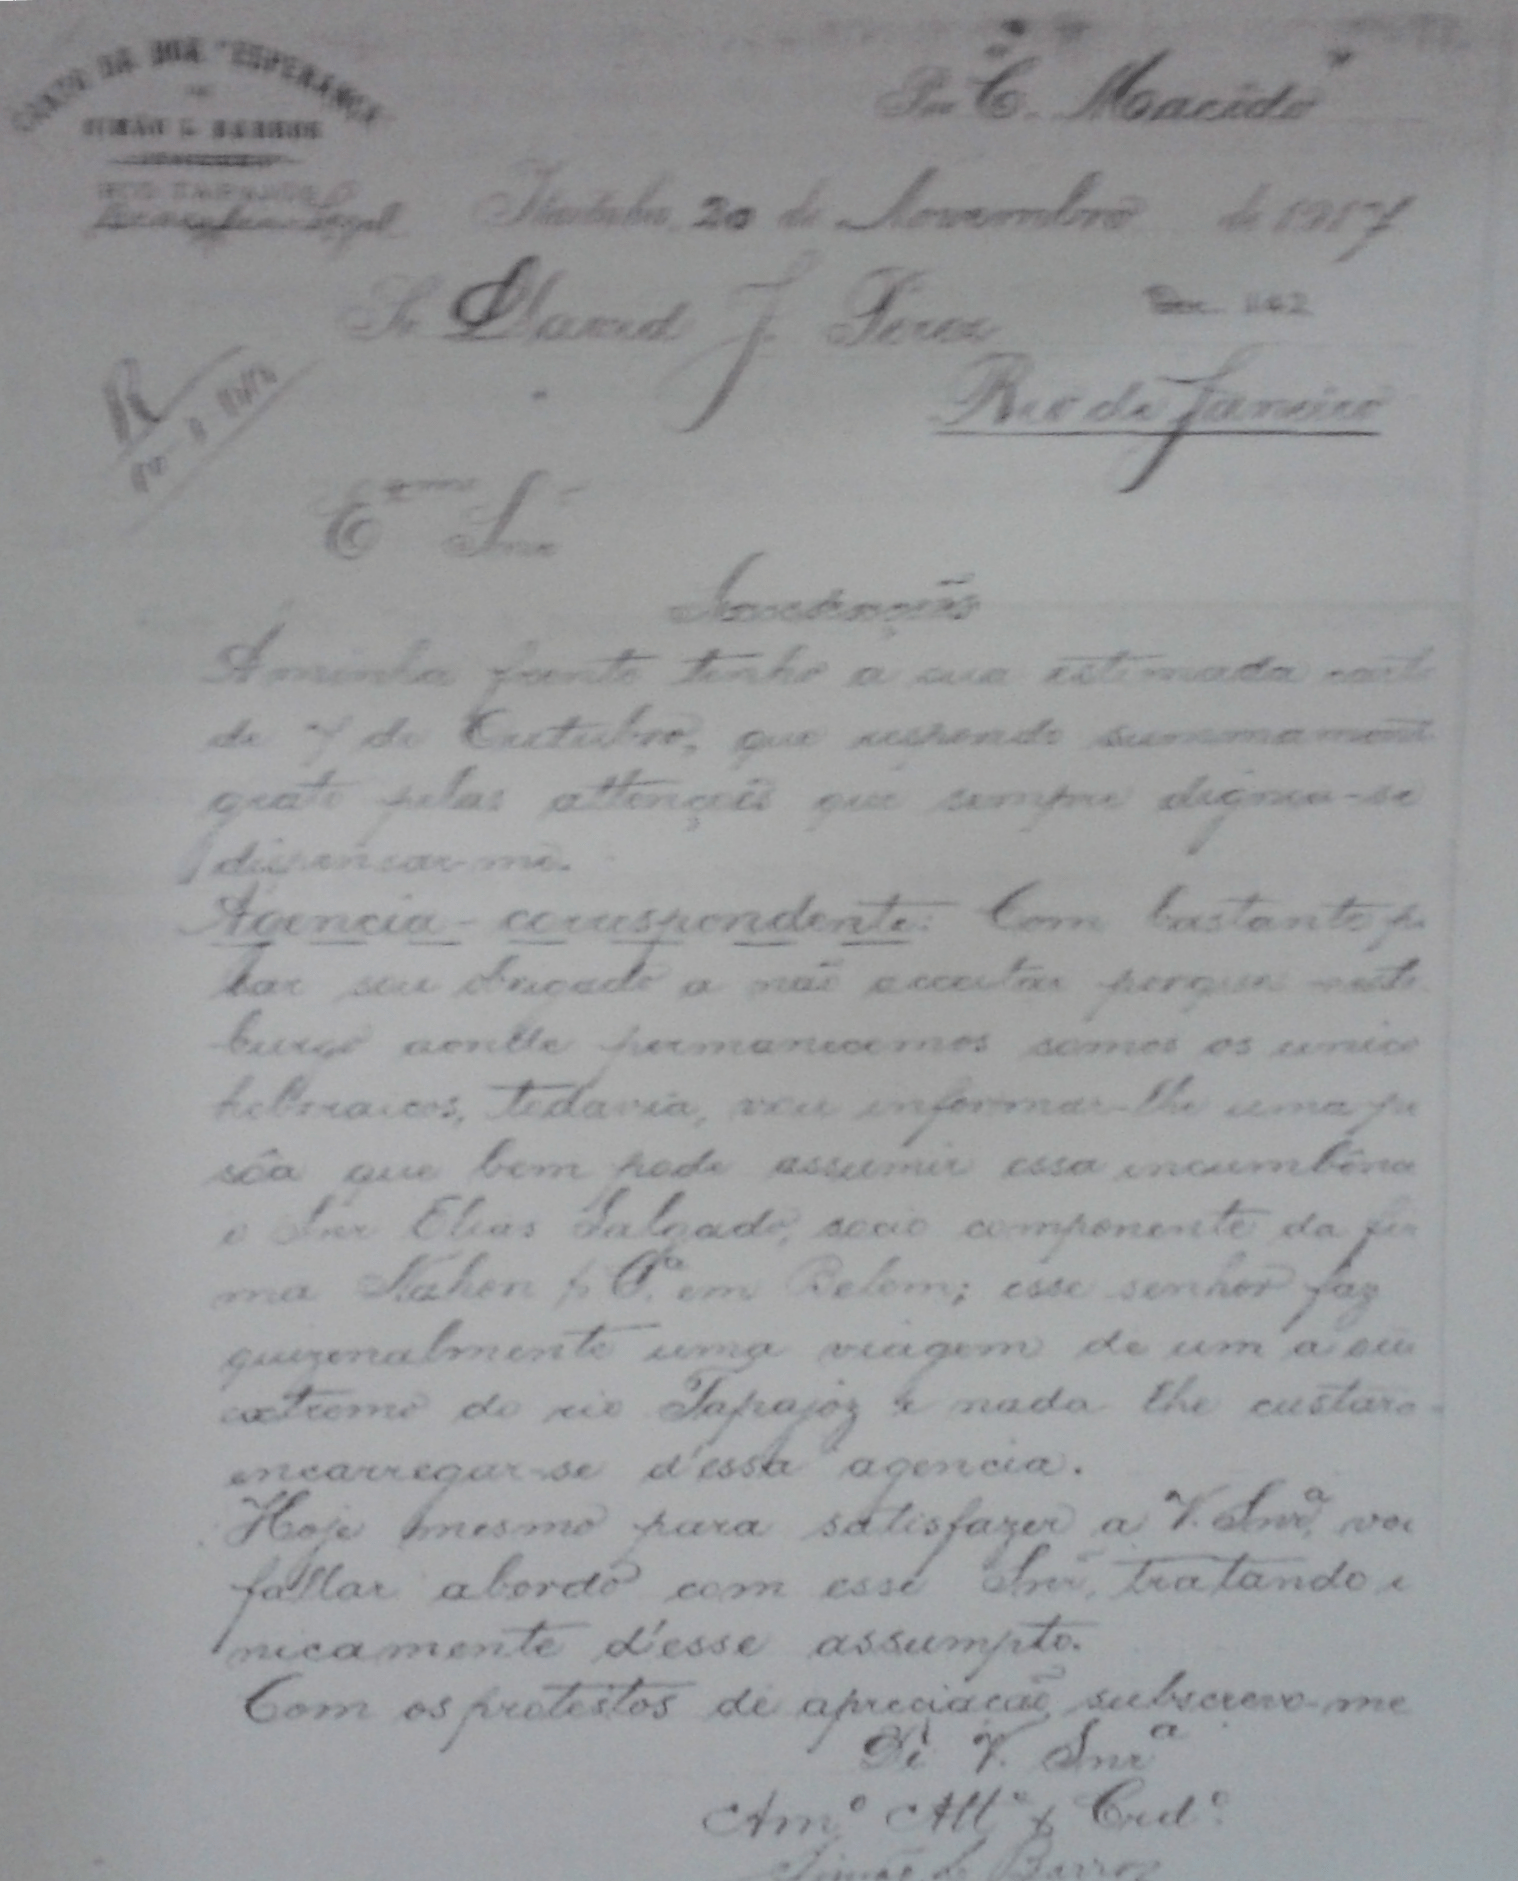 DA BOA ESPERANÇA
DE
SIMÃO & BARROS
RIO TAPAJOZ
Por "C. Macêdo"
20 de Novembro de 1917
Sr David J. Perez
Doc. 1162
Rio de Janeiro
R
Emo Snr
Saudações
A minha frente tenho a sua estimada carta
de 7 de Outubro, que respondo summamente
grato pelas attenções que sempre digna-se
dispensar-me.
Agencia-correspondente: Com bastante pe
zar sou obrigado a não acceitar porque neste
burgo aonde permanecemos somos os unico
hebraicos, todavia, vou informar-lhe uma pe
sôa que bem pode assumir essa incumbênc
o Snr Elias Salgado, socio componente da fir
ma Nahon & Ca. em Belem; esse senhor faz
quizenalmente uma viagem de um a ou
extremo do rio Tapajoz e nada lhe custará
encarregar-se d'essa agencia.
Hoje mesmo para satisfazer a V. Snra, vou
fallar abordo com esse Snr, tratando u
nicamente d'esse assumpto.
Com os protestos de apreciação subscrevo-me
De V. Snra
Amo Atto & Crdo.
Simão de Barros